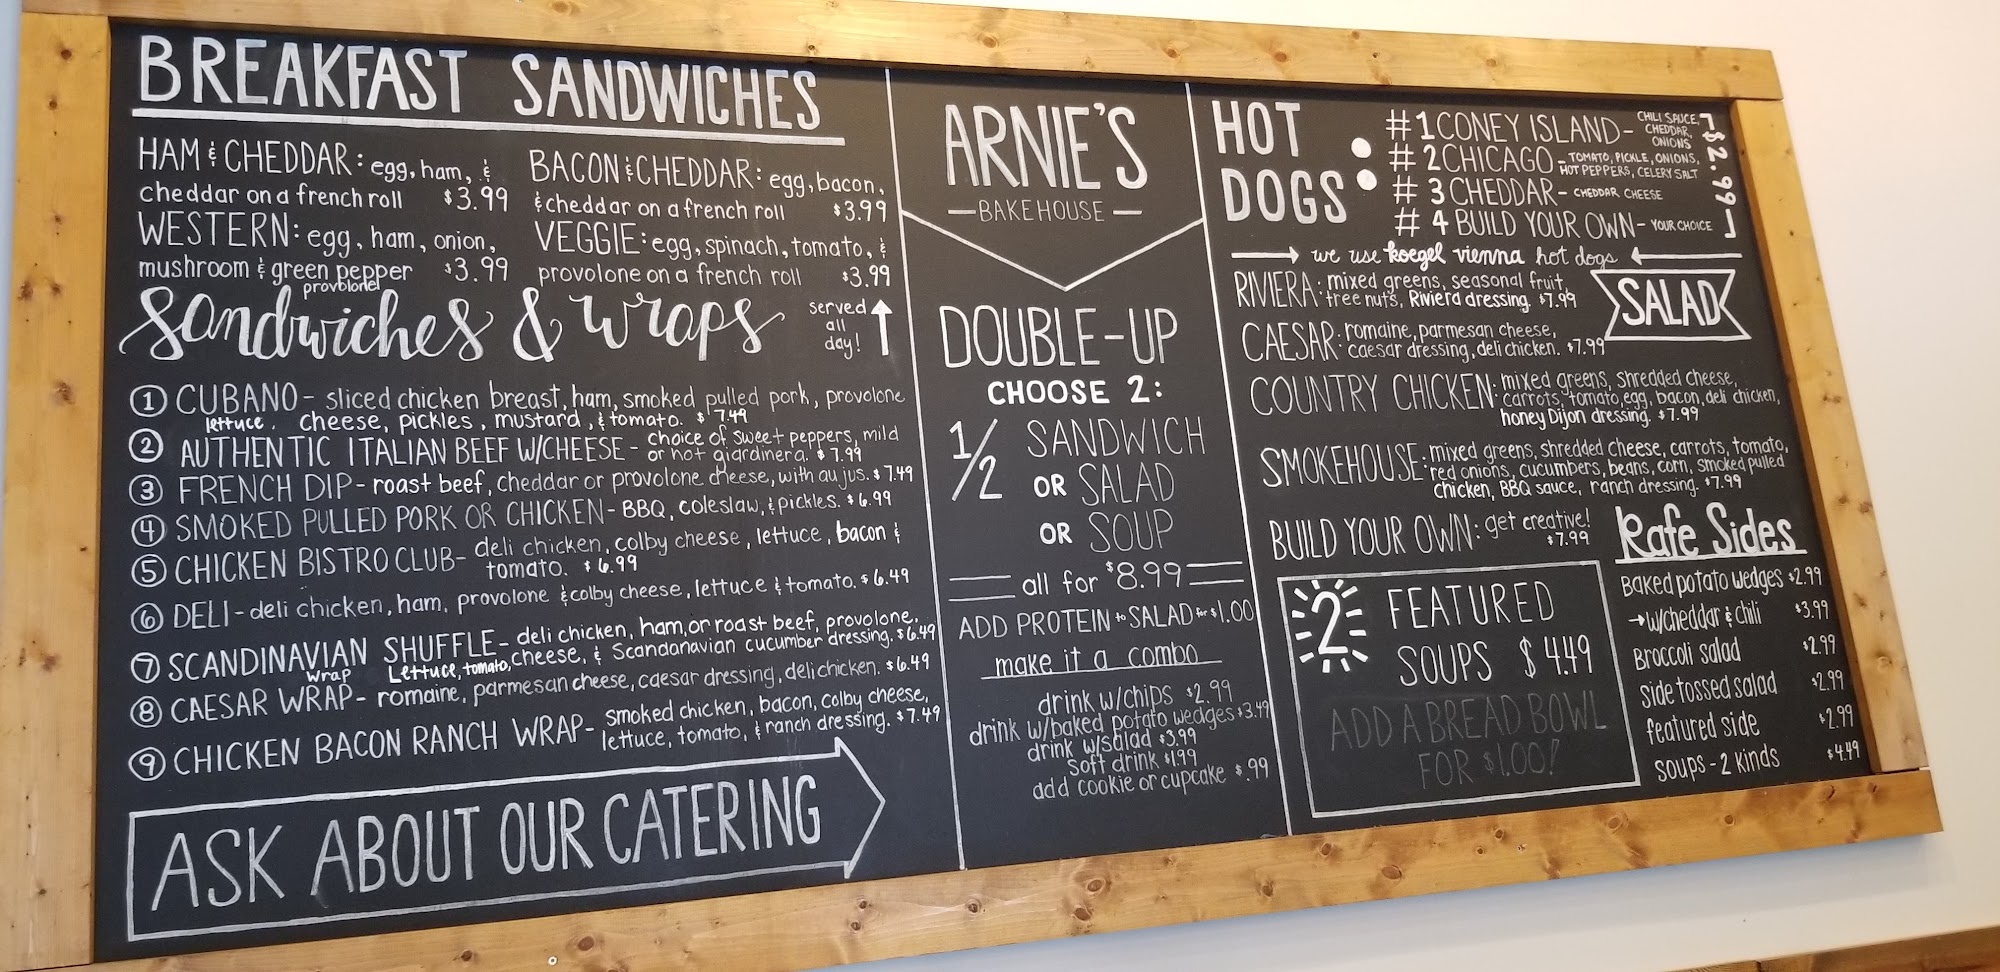 BREAKFAST SANDWICHES
HAM & CHEDDAR: egg, ham, &
cheddar on a french roll $3.99
BACON & CHEDDAR: egg, bacon,
& cheddar on a french roll $3.99
WESTERN: egg, ham, onion,
mushroom & green pepper $3.99
provolone
VEGGIE: egg, spinach, tomato, &
provolone on a french roll $3.99
sandwiches & wraps
served
all
day!
1 CUBANO - sliced chicken breast, ham, smoked pulled pork, provolone
lettuce, cheese, pickles, mustard, & tomato. $7.49
2 AUTHENTIC ITALIAN BEEF W/CHEESE - choice of sweet peppers, mild
or hot giardinera. $7.99
3 FRENCH DIP - roast beef, cheddar or provolone cheese, with au jus. $7.49
4 SMOKED PULLED PORK OR CHICKEN - BBQ, coleslaw, & pickles. $6.99
5 CHICKEN BISTRO CLUB - deli chicken, colby cheese, lettuce, bacon &
tomato. $6.99
6 DELI - deli chicken, ham, provolone & colby cheese, lettuce & tomato. $6.49
7 SCANDINAVIAN SHUFFLE - deli chicken, ham, or roast beef, provolone,
wrap Lettuce, tomato, cheese, & Scandanavian cucumber dressing. $6.49
8 CAESAR WRAP - romaine, parmesan cheese, caesar dressing, deli chicken. $6.49
9 CHICKEN BACON RANCH WRAP - smoked chicken, bacon, colby cheese,
lettuce, tomato, & ranch dressing. $7.49
ASK ABOUT OUR CATERING
ARNIE'S
BAKEHOUSE
DOUBLE-UP
CHOOSE 2:
1/2 SANDWICH
OR SALAD
OR SOUP
all for $8.99
ADD PROTEIN to SALAD for $1.00
make it a combo
drink w/chips $2.99
drink w/baked potato wedges $3.49
drink w/salad $3.99
soft drink $1.99
add cookie or cupcake $.99
HOT
DOGS:
#1 CONEY ISLAND - CHILI SAUCE,
CHEDDAR,
ONIONS
#2 CHICAGO - TOMATO, PICKLE, ONIONS,
HOT PEPPERS, CELERY SALT
#3 CHEDDAR - CHEDDAR CHEESE
#4 BUILD YOUR OWN - YOUR CHOICE
$2.99
we use koegel vienna hot dogs
SALAD
RIVIERA: mixed greens, seasonal fruit,
tree nuts, Riviera dressing. $7.99
CAESAR: romaine, parmesan cheese,
caesar dressing, deli chicken. $7.99
COUNTRY CHICKEN: mixed greens, shredded cheese,
carrots, tomato, egg, bacon, deli chicken,
honey Dijon dressing. $7.99
SMOKEHOUSE: mixed greens, shredded cheese, carrots, tomato,
red onions, cucumbers, beans, corn, smoked pulled
chicken, BBQ sauce, ranch dressing. $7.99
BUILD YOUR OWN: get creative!
$7.99
2 FEATURED
SOUPS $4.49
ADD A BREAD BOWL
FOR $1.00!
Kafe Sides
Baked potato wedges $2.99
→ w/cheddar & chili $3.99
Broccoli salad $2.99
side tossed salad $2.99
featured side $2.99
soups - 2 kinds $4.49